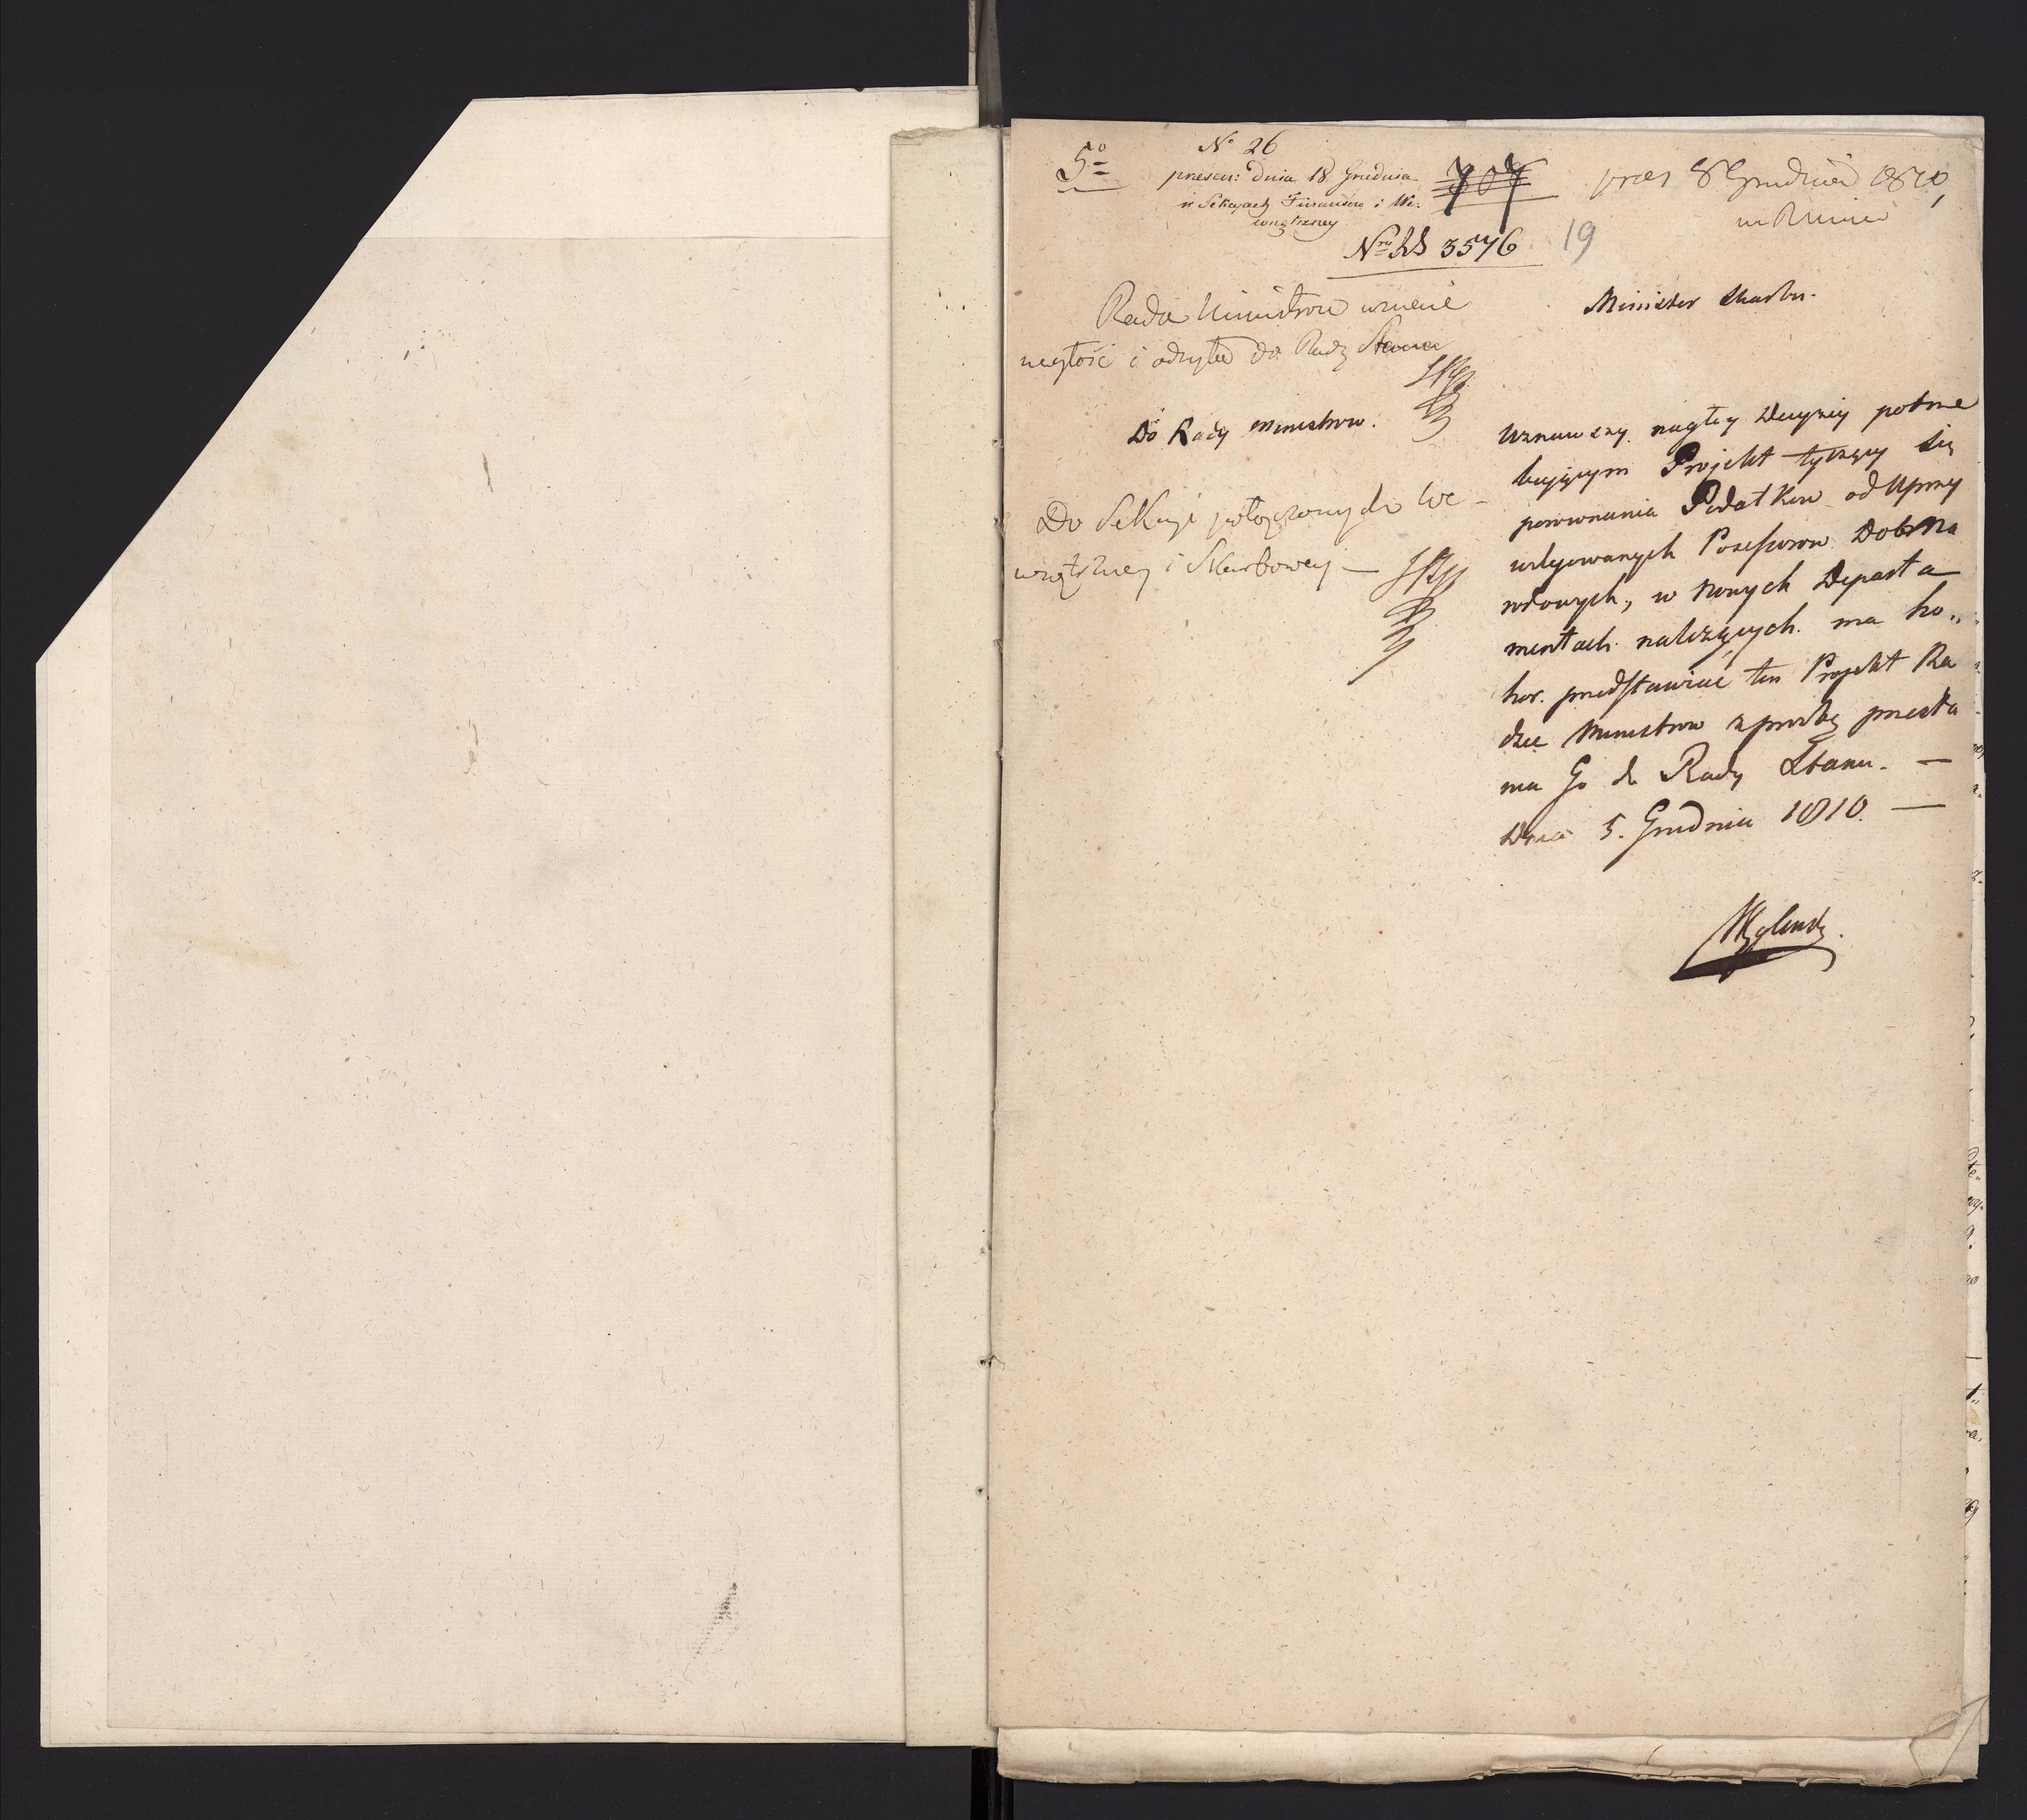 5o
No 26
presen: Dnia 18 Grudnia
w Sekcyach Finansów i We:
wnętrzney
707
pres 8 Grudnia 1810,
Nro RS 3576
19
Rada Ministrow uznaie
nagłość i odsyła do Rady Stanu
Do Rady Ministrow.
Do Sekcyi połączonych We-
wnętrzney i Skarbowey —
Minister Skarbu.
Uznawszy nagłey Decyzyi potrze
buiącym Projekt tyczący się
porownania Podatkow od Uprzy
wilejowanych Posessorow Dobr Na
rodowych, w nowych Departa
mentach należących. ma ho„
nor. przedstawiać ten Projekt Ra
dzie Ministrow z prośbą przesła
nia Go do Rady Stanu. —
Dnia 5. Grudnia 1810. —
Węgleński.